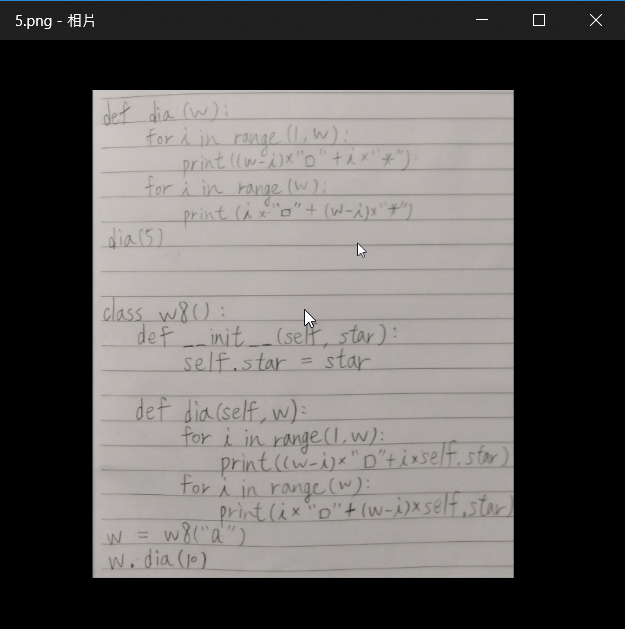 5.png - 相片
def dia (w):
for i in range (1, w):
print ((w-i)×"□" + i×"*")
for i in range (w):
print (i×"□" + (w-i)×"*")
dia(5)
class w8():
def __init__(self, star):
self.star = star
def dia(self, w):
for i in range(1, w):
print((w-i)×"□"+i×self.star)
for i in range(w):
print(i×"□"+(w-i)×self.star)
w = w8("a")
w.dia(10)